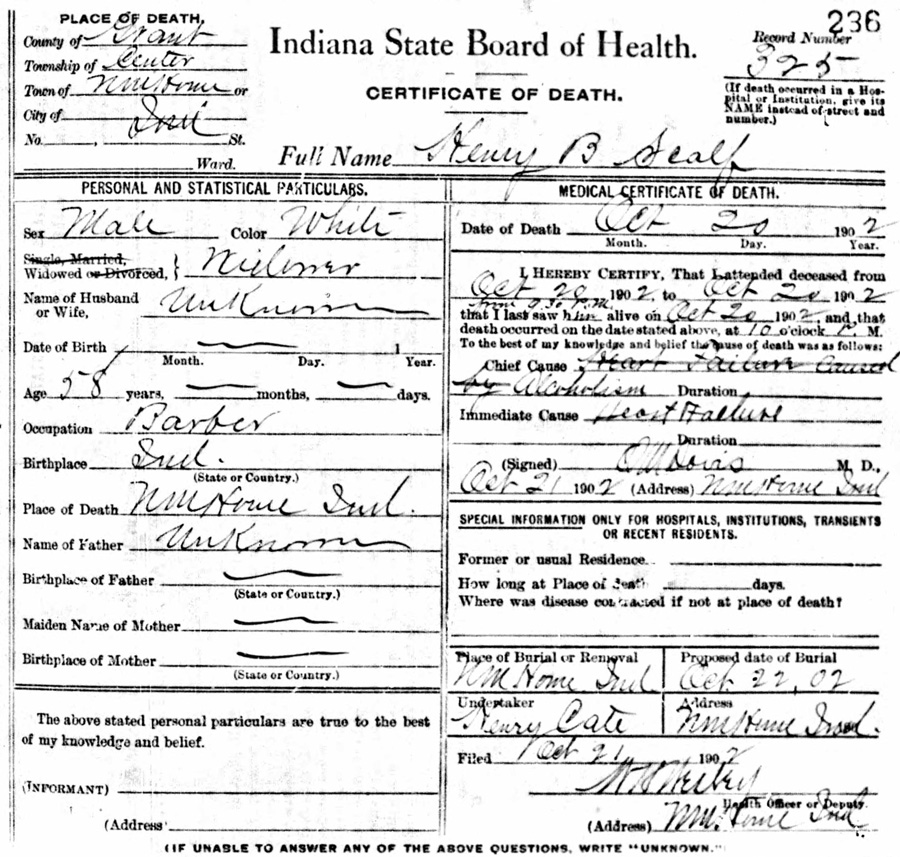 236
PLACE OF DEATH.
County of Grant
Township of Center
Town of NMHome or
City of
Ind
No. , St.
Ward.
Indiana State Board of Health.
CERTIFICATE OF DEATH.
Record Number
325
(If death occurred in a Hos-
pital or Institution, give its
NAME instead of street and
number.)
Full Name Henry B Scalf
PERSONAL AND STATISTICAL PARTICULARS.
Sex Male Color White
Single, Married,
Widowed or Divorced, } Widower
Name of Husband
or Wife, Unknown
Date of Birth 1
Month. Day. Year.
Age 58 years, months, days.
Occupation Barber
Birthplace Ind.
(State or Country.)
Place of Death NMHome Ind.
Name of Father Unknown
Birthplace of Father
(State or Country.)
Maiden Name of Mother
Birthplace of Mother
(State or Country.)
The above stated personal particulars are true to the best
of my knowledge and belief.
(INFORMANT)
(Address)
MEDICAL CERTIFICATE OF DEATH.
Date of Death Oct 20 1902
Month. Day. Year.
I HEREBY CERTIFY, That I attended deceased from
Oct 20 1902, to Oct 20 1902
from 9.30 P.M.
that I last saw him alive on Oct 20 1902, and that
death occurred on the date stated above, at 10 o'clock P. M.
To the best of my knowledge and belief the cause of death was as follows:
Chief Cause Heart Failure Caused
by Alcoholism Duration
Immediate Cause Heart Failure
Duration
(Signed) Davis M. D.,
Oct 21 1902 (Address) NMHome Ind
SPECIAL INFORMATION ONLY FOR HOSPITALS, INSTITUTIONS, TRANSIENTS
OR RECENT RESIDENTS.
Former or usual Residence.
How long at Place of death days.
Where was disease contracted if not at place of death?
Place of Burial or Removal
NM Home Ind
Proposed date of Burial
Oct 22, 02
Undertaker
Henry Cate
Address
NMHome Ind.
Filed Oct 21 1902
Health Officer or Deputy.
(Address) NM.Home Ind
(IF UNABLE TO ANSWER ANY OF THE ABOVE QUESTIONS, WRITE "UNKNOWN."